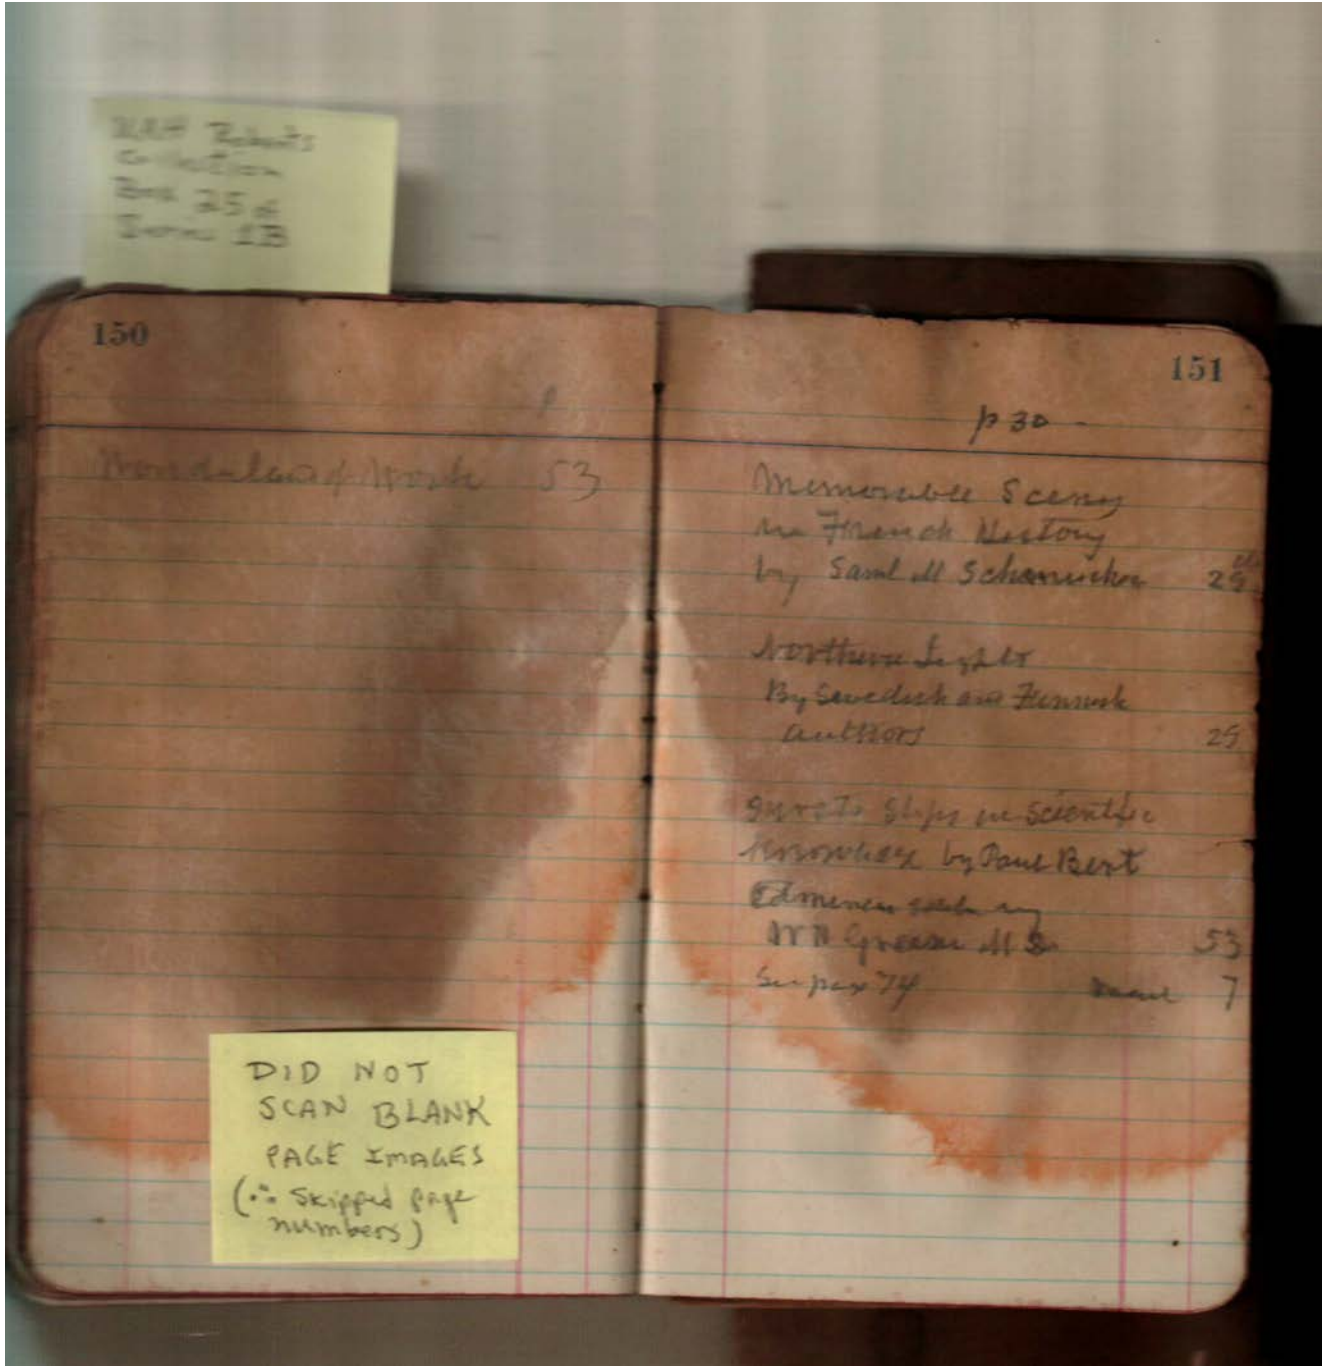 Roberts
Collection
Box 25 of
Series 1B
150
53
DID NOT
SCAN BLANK
PAGE IMAGES
(∴ Skipped page
numbers)
151
p 30 -
Memorable Scenes
in French History
by Saml M Schmucker 25
Northern Lights
By Swedish and Finnish
authors 25
Steps in Scientific
Knowledge by Paul Bert
W H Greene M D 53
See page 74 7